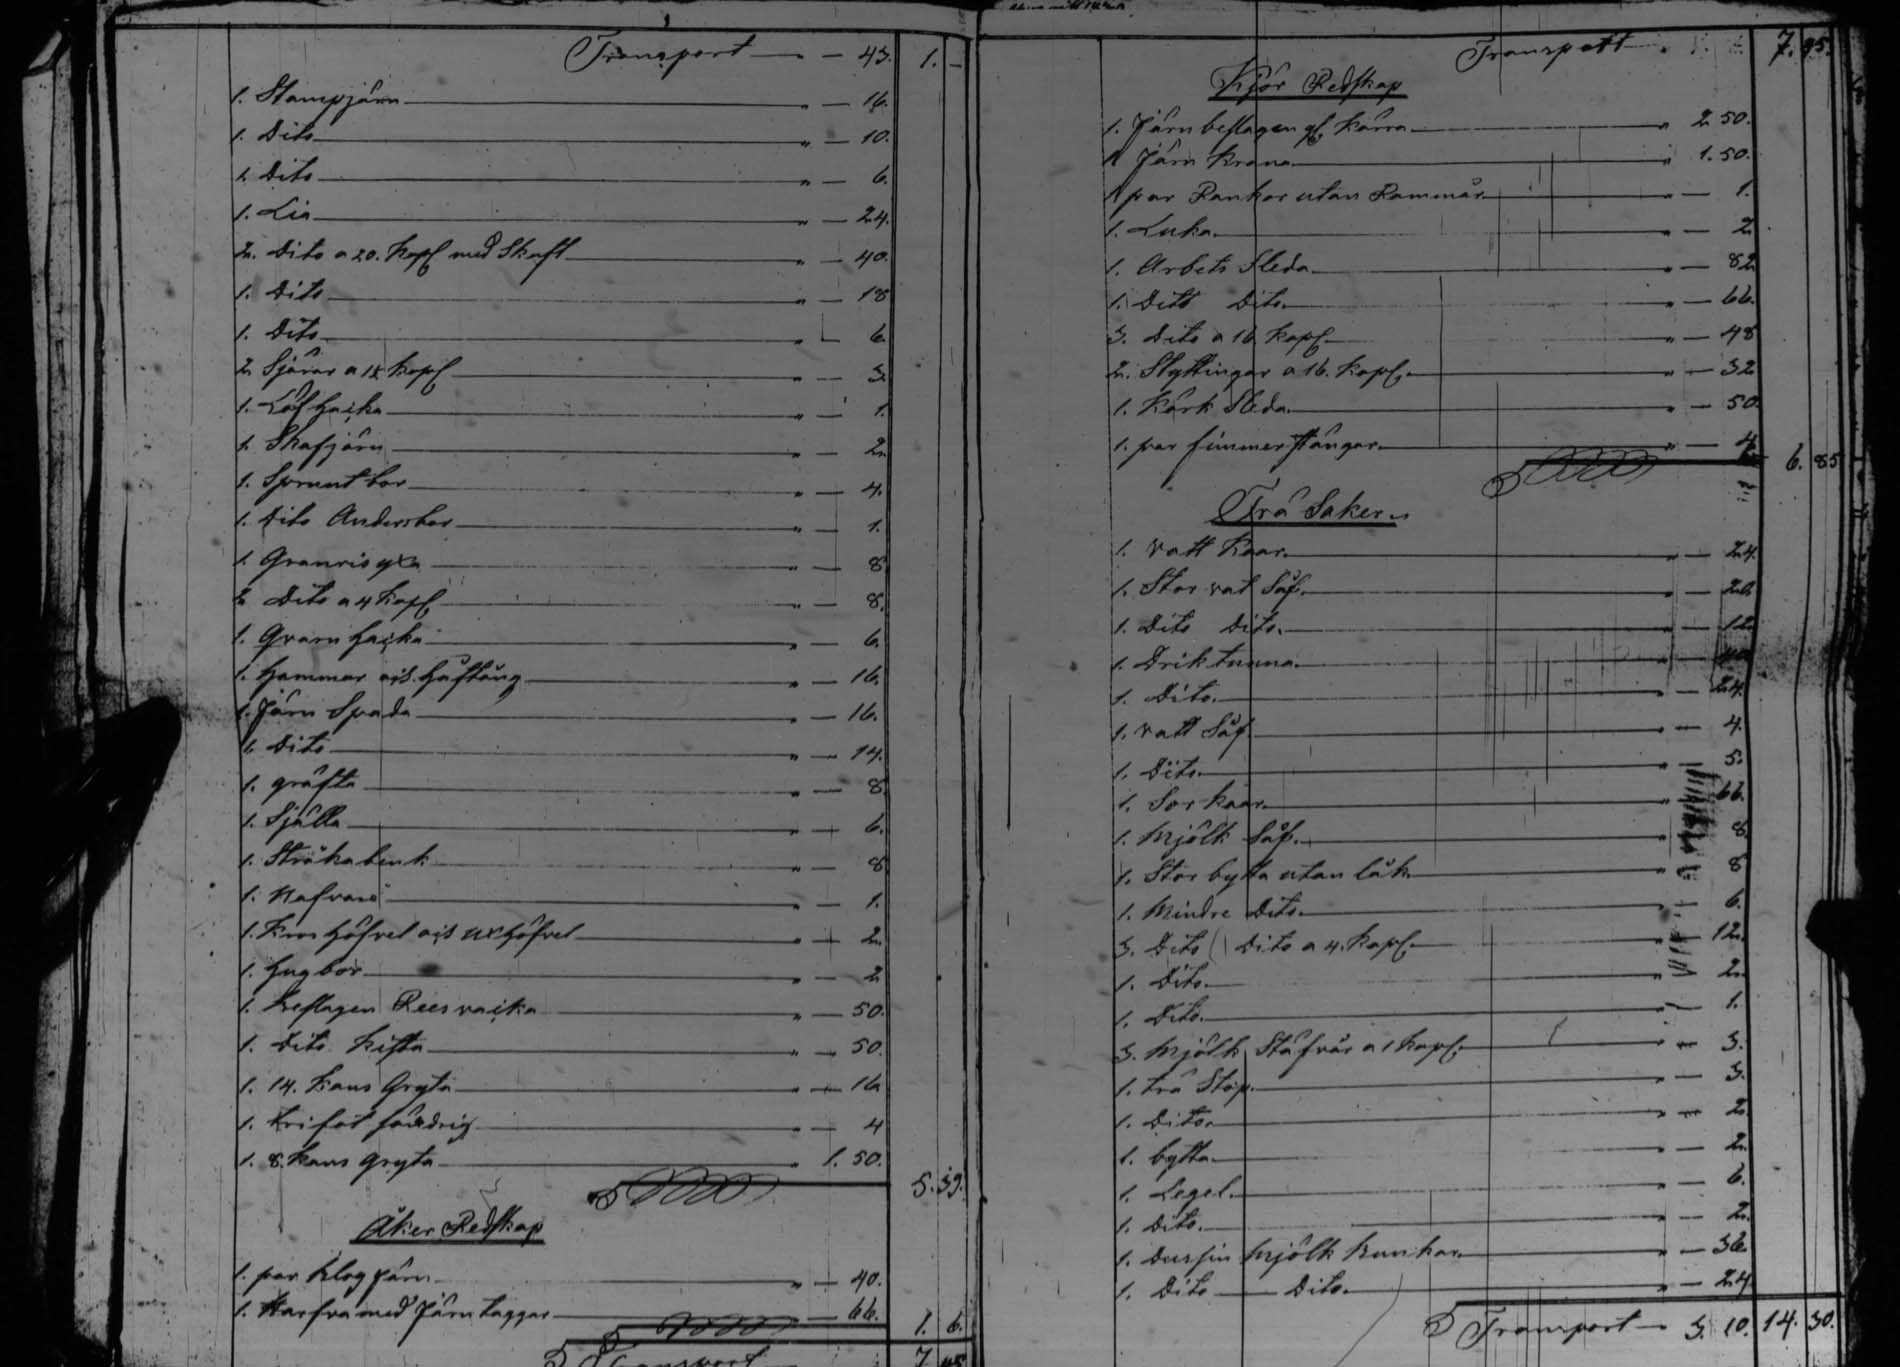 Transport " — 43. 1. —
1. Stampjärn " — 16.
1. Dito " — 10.
1. Dito " — 6.
1. Lia " — 24.
2. Dito a 20. kopf med Skaft " — 40.
1. Dito " — 18
1. Dito 6.
2. Sjärar a 1½ kopf " — 3.
1. Löf hacka " — 1.
1. Skafjärn " — 2.
1. Sprunt bor " — 4.
1. Dito Andersbor " — 1.
1. Granris yxa " — 8
2. Dito a 4 kopf " — 8.
1. Qvarn hacka " — 6.
1. Hammar och Håftång " — 16.
1. Järn Spada " — 16.
1. Dito " — 14.
1. gräfta " — 8.
1. Sjålla " — 6.
1. Stråkabenk " — 8
1. Nafvare " — 1.
1. Kros höfvel och uxhöfvel " — 2.
1. Hugbor " — 2
1. beslagen Reesväcka " — 50.
1. Dito Kista " — 50.
1. 14. kans Gryta " — 16
1. trifot " — 4
1. 8. kans gryta " 1. 50.
5. 39.
Åker Redskap
1. par Klog järn " — 40.
1. Harfva med Järn taggar — 66.
1. 6.
Transport 7. 45
Transport " 7. 45.
Kjör Redskap
1. Järn beslagen gl. kärra " 2 50.
1 Järn Krana " 1. 50.
1 par Rankor utan Rammar " — 1.
1. Luka " — 2
1. Arbets Sleda " — 82
1. Dito Dito " — 66.
3. Dito a 16. kopf " — 48
2. Styttingar a 16. kopf " — 32
1. Kårk Sleda " — 50.
1. par fimmerstångar " — 4
6. 85
Trä Saker
1. Vatt Kaar " — 24.
1. Stor vat Såf " — 20.
1. Dito Dito " — 12
1. Driktunna "
1. Dito " — 24.
1. Vatt Såf " — 4.
1. Dito " — 5.
1. Sorkaar " 66.
1. Mjölk Såf " 8.
1. Stor bytta utan låk " 8
1. Mindre Dito " 6.
3. Dito Dito a 4. kopf " 12.
1. Dito " 2.
1. Dito " 1.
3. Mjölk Stäfvar a 1 kopf " — 3.
1. trä Stop " — 3.
1. Dito " — 2.
1. bytta " — 2.
1. Legel " — 6.
1. Dito " — 2.
1. Dussin Mjölk bunkar " — 36.
1. Dito Dito " — 24
Transport " 3. 10. 14. 30.